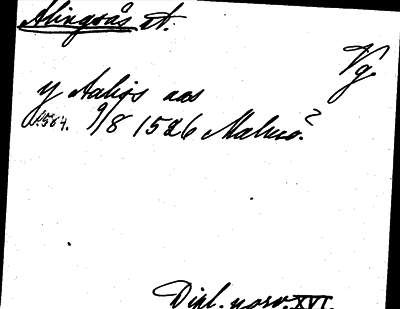 Alingsås st.
Vg.
y Aaligs aas
s. 584. 9/8 1526 Malmö.2
Dipl. norv. XVI.